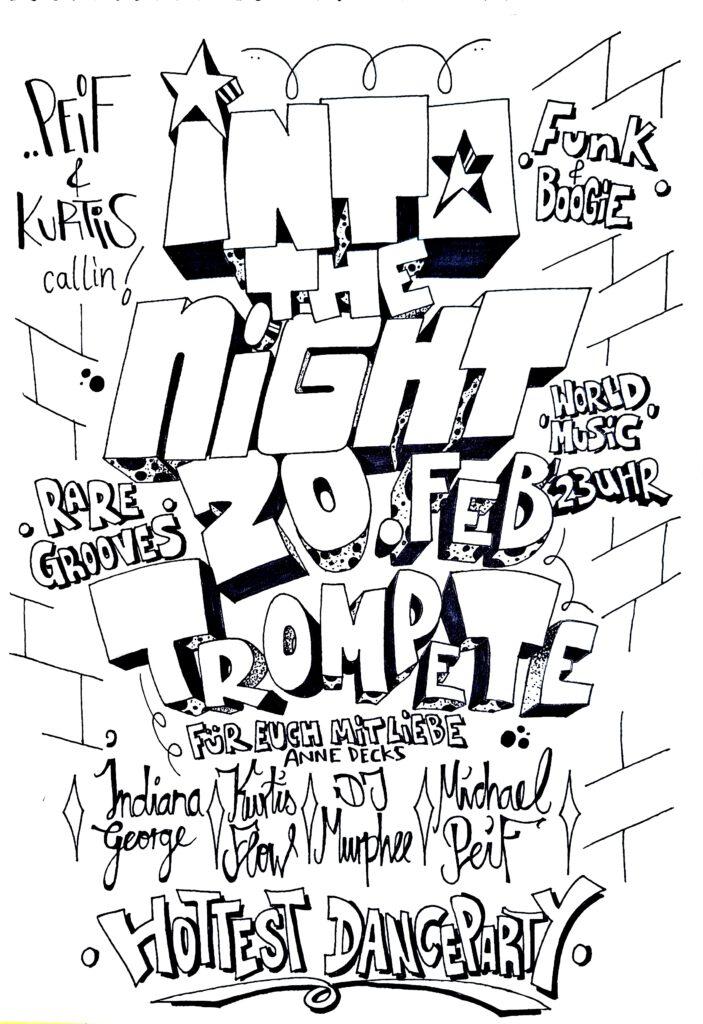 ..PEiF
&
KURTiS
callin!
iNTO
THE
NiGHT
20. FEB
TROMPETE
Funk
&
BOOGiE
WORLD
MUSiC
23 UHR
RARE
GROOVES
FÜR EUCH MiT LiEBE
ANNE DECKS
Indiana
George
Kurtis
Flow
DJ
Murphee
Michael
PeiF
HOTTEST DANCEPARTY